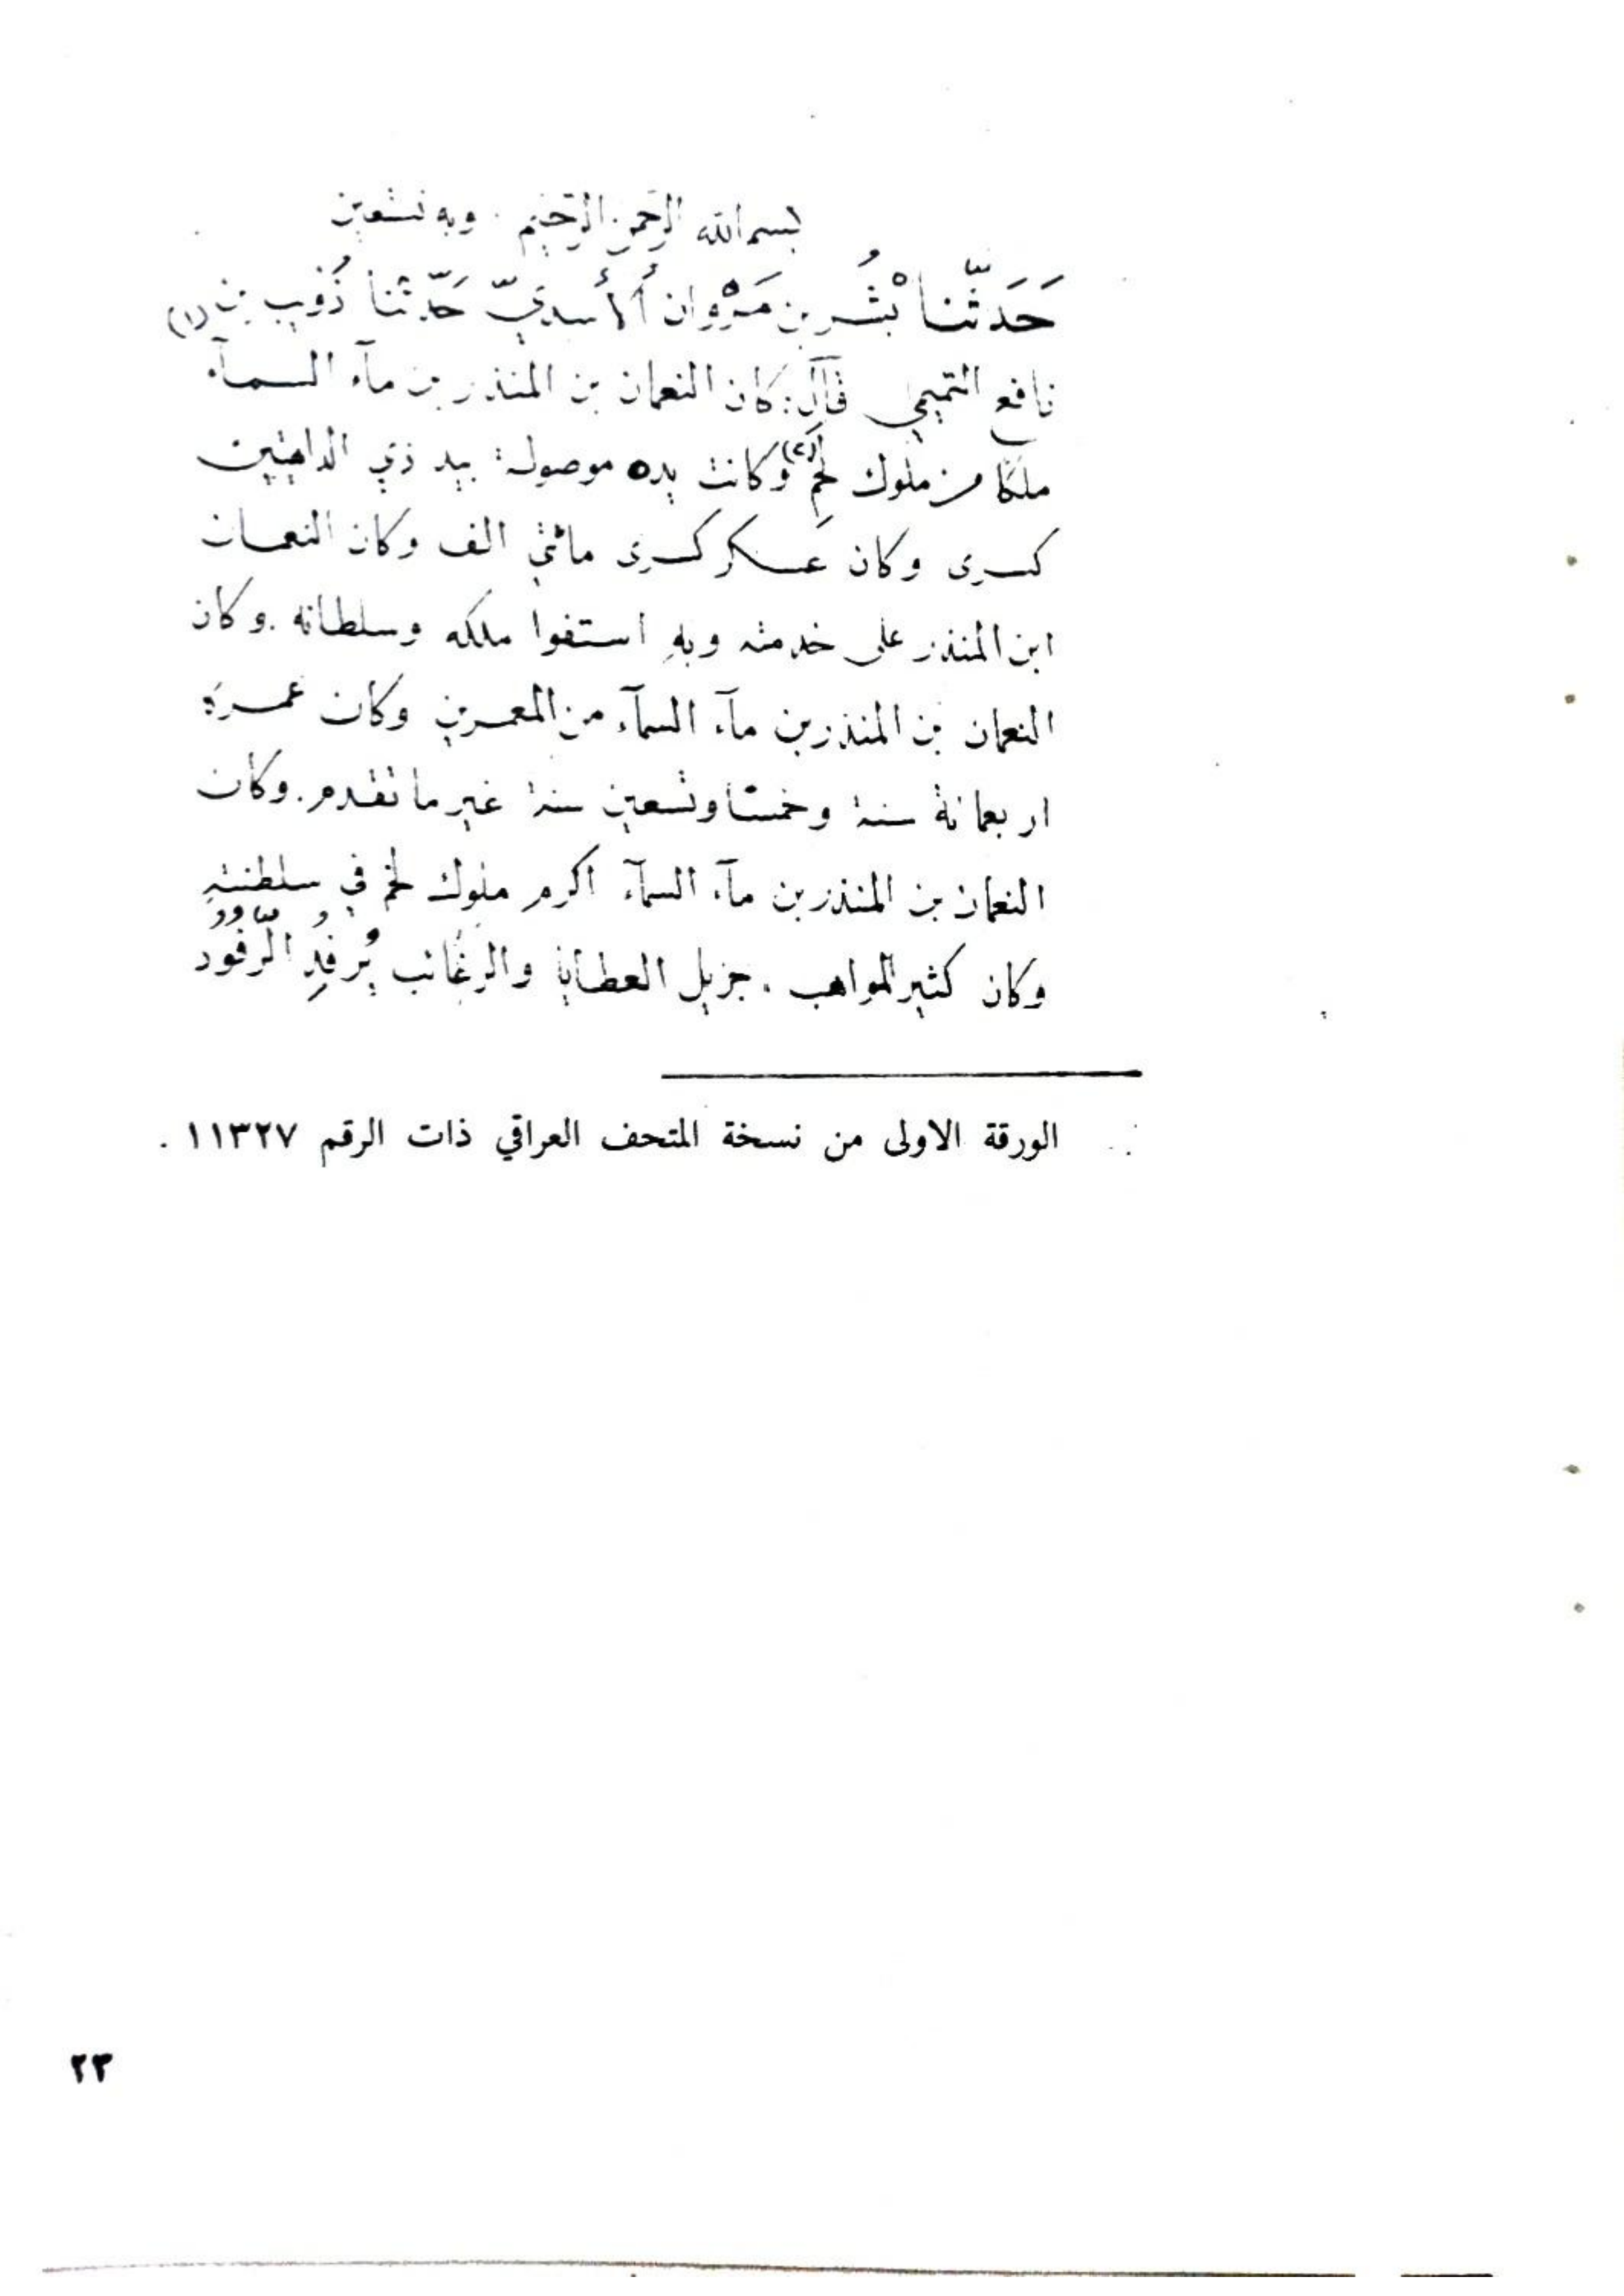 بسم الله الرحمن الرحيم . وبه نستعين
حَدَّثنا بْشُر بن مَرْوان ألأسديّ حَدّثنا ذُؤيب بن (١)
نافع التميمي قالَ : كان النعمان بن المنذر بن مآء السمآء
ملكًا من ملوك لخم (٢) وكانت يده موصولة بيد ذي
كسرى وكان عسكر كسرى مائتي الف وكان النعمان
ابن المنذر على خدمته وبهِ استفوا ملكه وسلطانه . وكان
النعمان بن المنذر بن مآء السمآء من المعمرين وكان عمره
اربعمائة سنة وخمسًا وتسعين سنة غير ما تقدم . وكان
النعمان بن المنذر بن مآء السمآء اكرم ملوك لخم في سلطنتهِ
وكان كثير المواهب . جزيل العطايا والرغائب يُرفدِ الرّفُود
الورقة الاولى من نسخة المتحف العراقي ذات الرقم ١١٣٢٧ .
٢٣